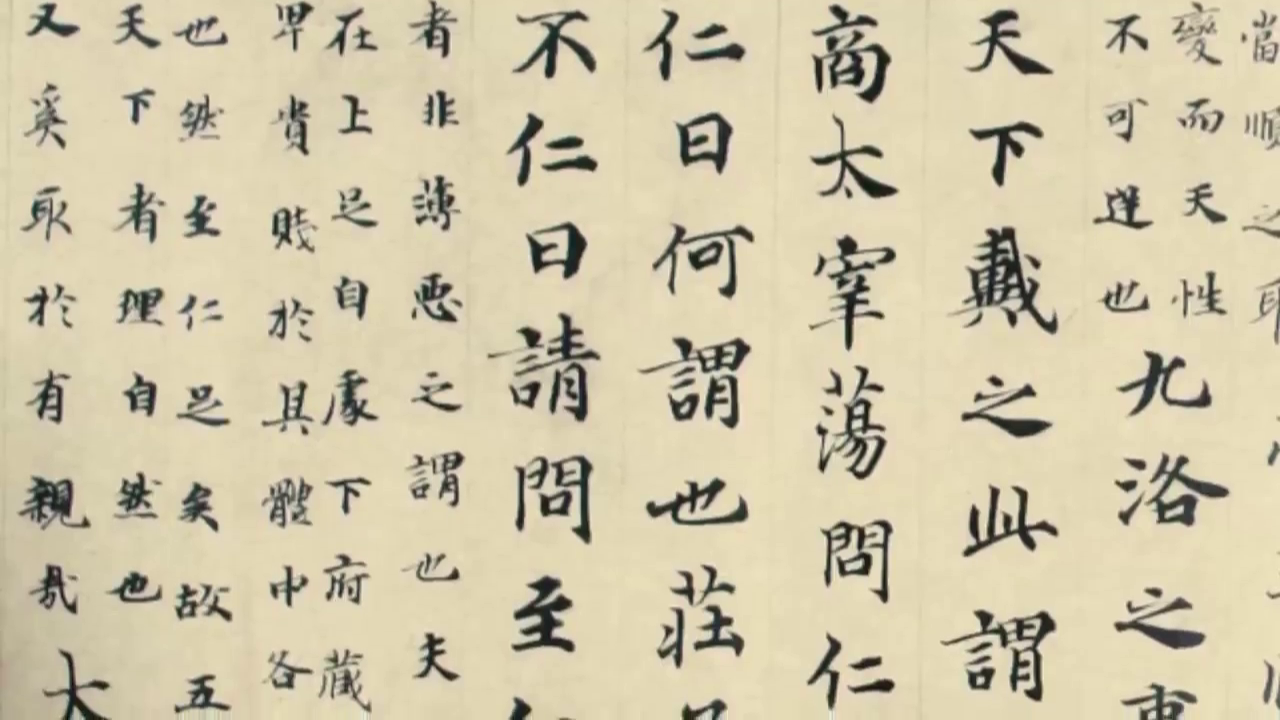 當順之
變而天性
不可逆也
九洛之事
天下戴之此謂
商太宰蕩問仁
仁曰何謂也莊
不仁曰請問至
者非薄惡之謂也夫
在上足自處下府藏
卑貴賤於其體中各
也然至仁足矣故五
天下者理自然也
又奚取於有親哉
大